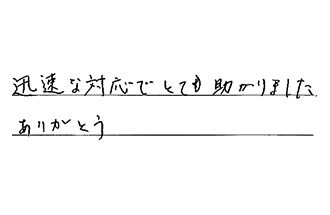 迅速な対応でとても助かりました
ありがとう